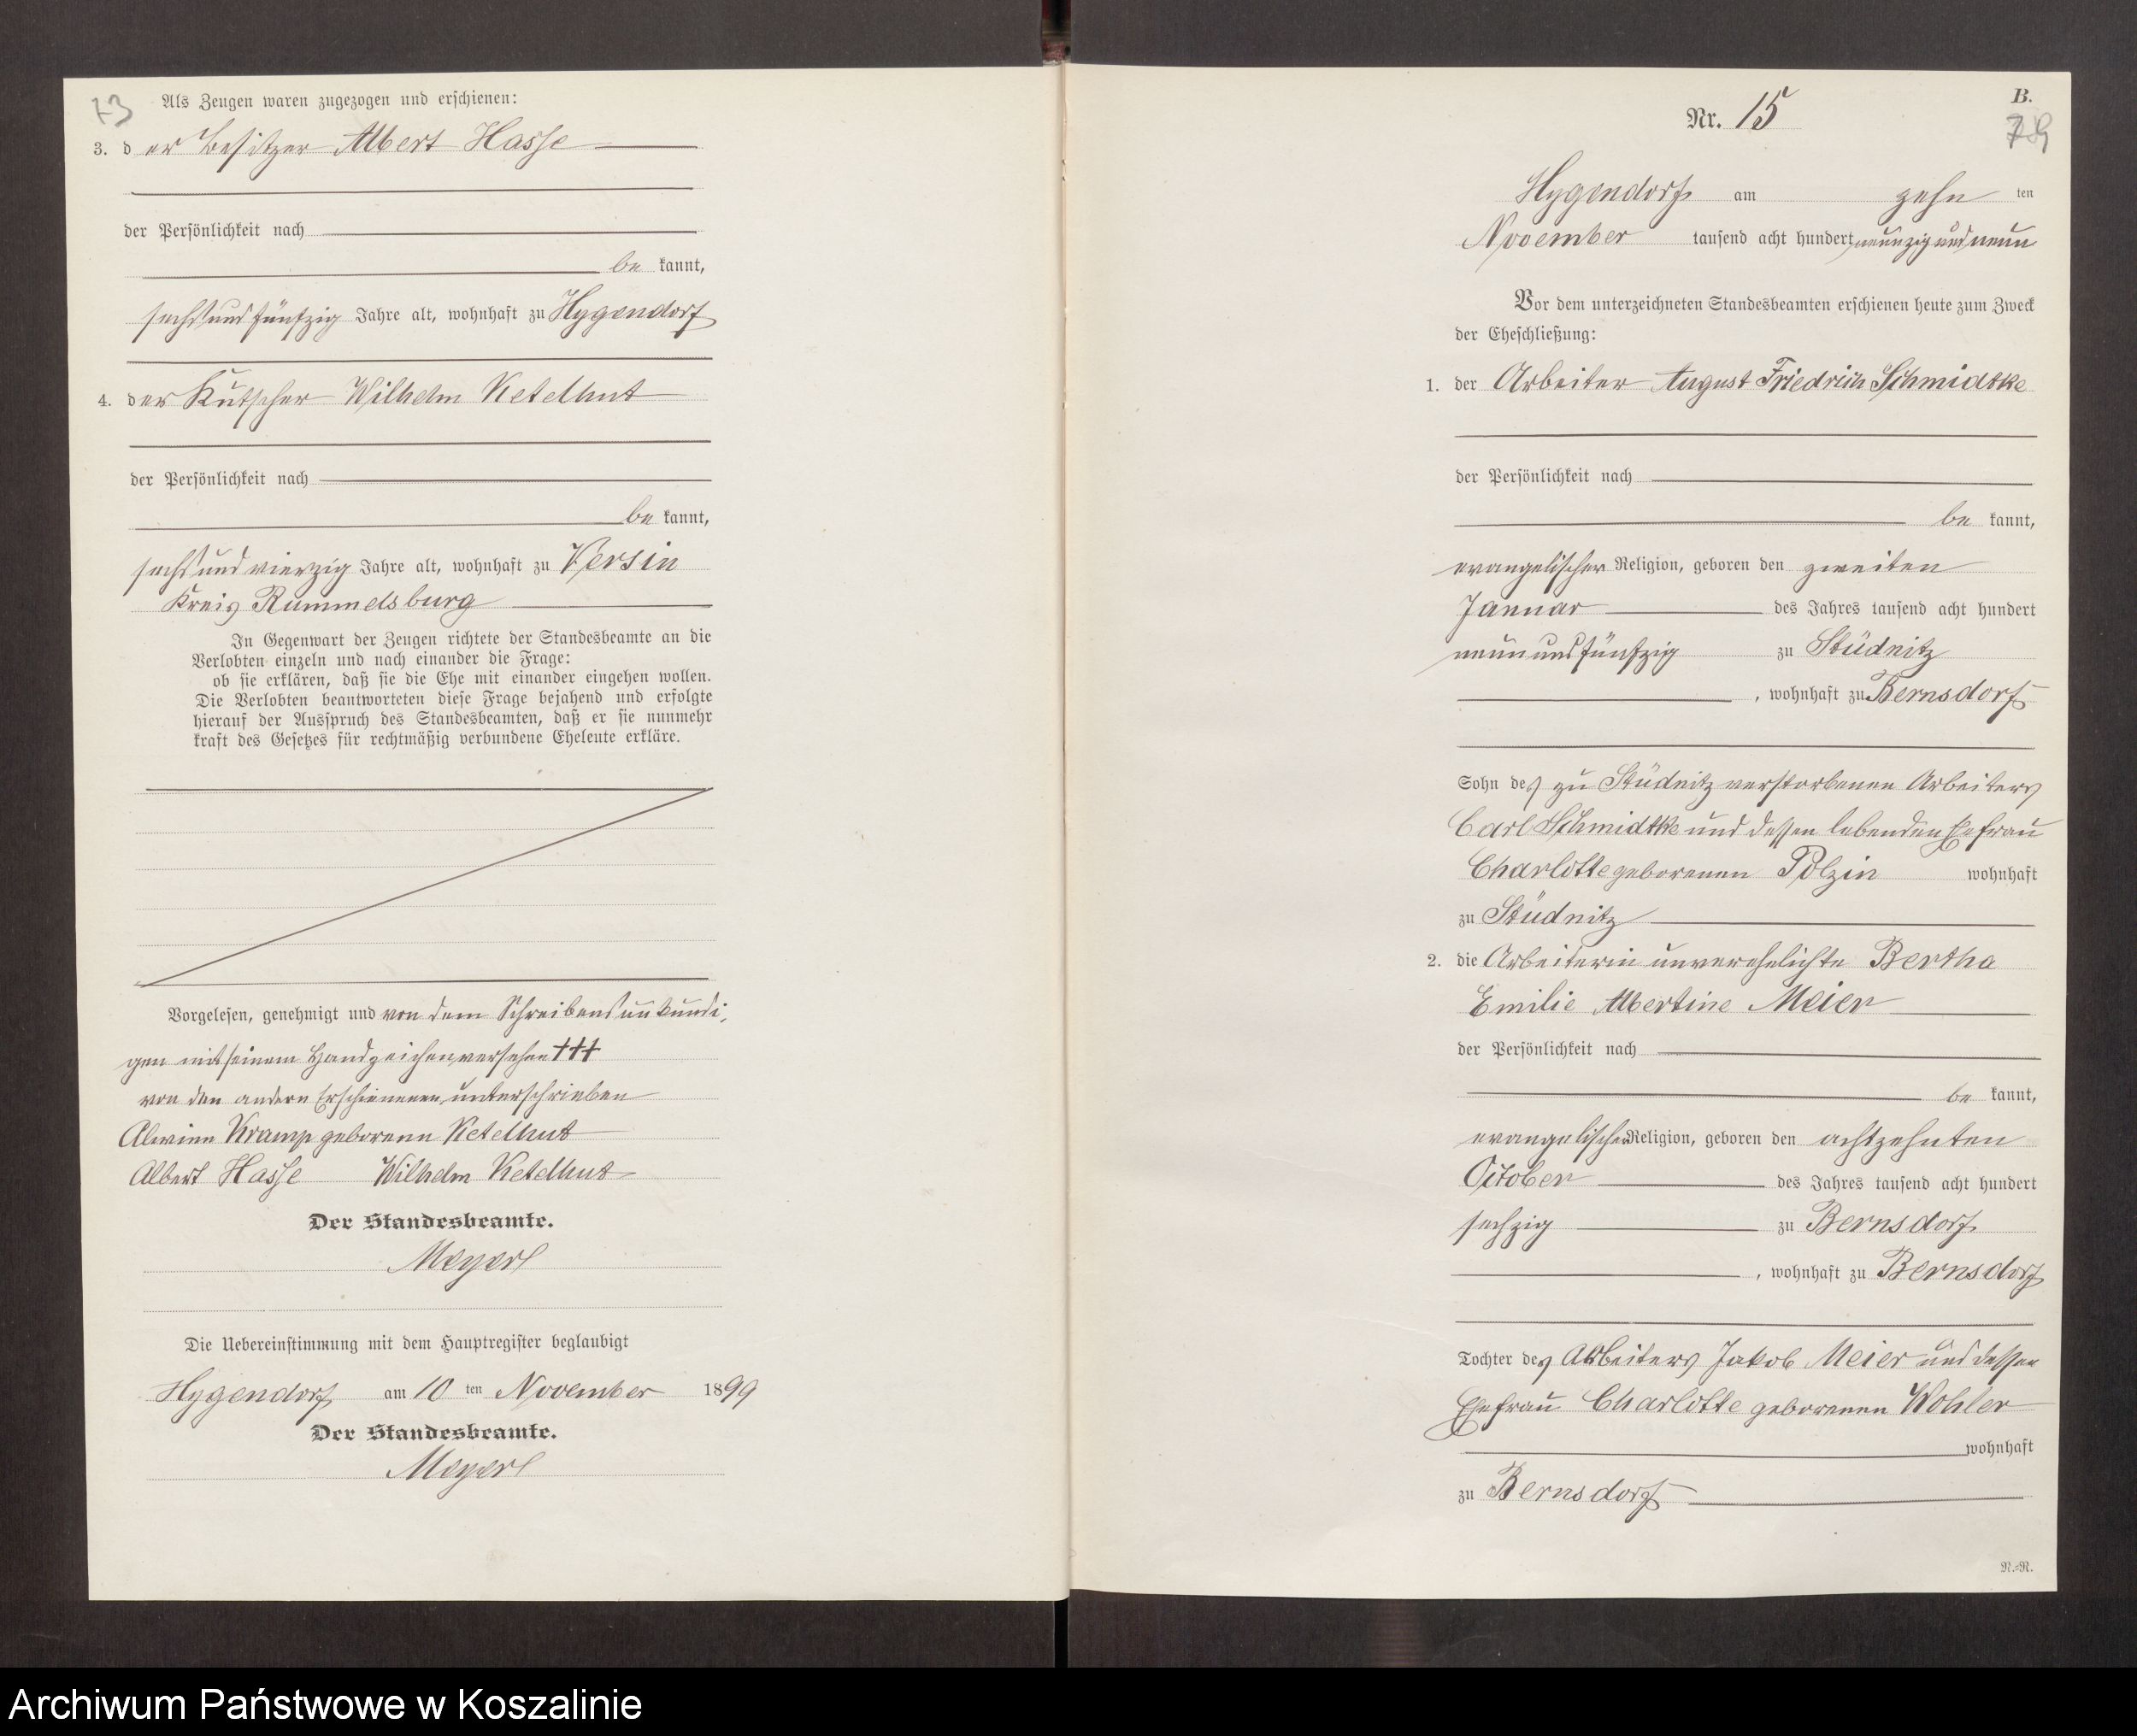 73
Als Zeugen waren zugezogen und erschienen:
3. der Besitzer Albert Hasse
der Persönlichkeit nach
be kannt,
sechsundfünfzig Jahre alt, wohnhaft zu Hygendorf
4. der Kutscher Wilhelm Ketelhut
der Persönlichkeit nach
be kannt,
sechsundvierzig Jahre alt, wohnhaft zu Versin
Kreis Rummelsburg
In Gegenwart der Zeugen richtete der Standesbeamte an die
Verlobten einzeln und nach einander die Frage:
ob sie erklären, daß sie die Ehe mit einander eingehen wollen.
Die Verlobten beantworteten diese Frage bejahend und erfolgte
hierauf der Ausspruch des Standesbeamten, daß er sie nunmehr
kraft des Gesetzes für rechtmäßig verbundene Eheleute erkläre.
Vorgelesen, genehmigt und von dem Schreibensunkundi-
gen mit seinem Handzeichen versehen +++
von den andern Erschienenen unterschrieben
Alwine Kramp geborene Ketelhut
Albert Hasse Wilhelm Ketelhut
Der Standesbeamte.
Die Uebereinstimmung mit dem Hauptregister beglaubigt
Hygendorf am 10 ten November 1899
Der Standesbeamte.
B.
Nr. 15
Hygendorf am zehn ten
November tausend acht hundert neunzig und neun
Vor dem unterzeichneten Standesbeamten erschienen heute zum Zweck
der Eheschließung:
1. der Arbeiter August Friedrich Schmidtke
der Persönlichkeit nach
be kannt,
evangelischer Religion, geboren den zweiten
Januar des Jahres tausend acht hundert
neunundfünfzig zu Stüdnitz
, wohnhaft zu Bernsdorf
Sohn des zu Stüdnitz verstorbenen Arbeiters
Carl Schmidtke und dessen lebenden Ehefrau
Charlotte geborenen Polzin wohnhaft
zu Stüdnitz
2. die Arbeiterin unverehelichte Bertha
Emilie Albertine Meier
der Persönlichkeit nach
be kannt,
evangelischer Religion, geboren den achtzehnten
October des Jahres tausend acht hundert
sechzig zu Bernsdorf
, wohnhaft zu Bernsdorf
Tochter des Arbeiters Jakob Meier und dessen
Ehefrau Charlotte geborenen Wohler
wohnhaft
zu Bernsdorf
N.=N.
Archiwum Państwowe w Koszalinie